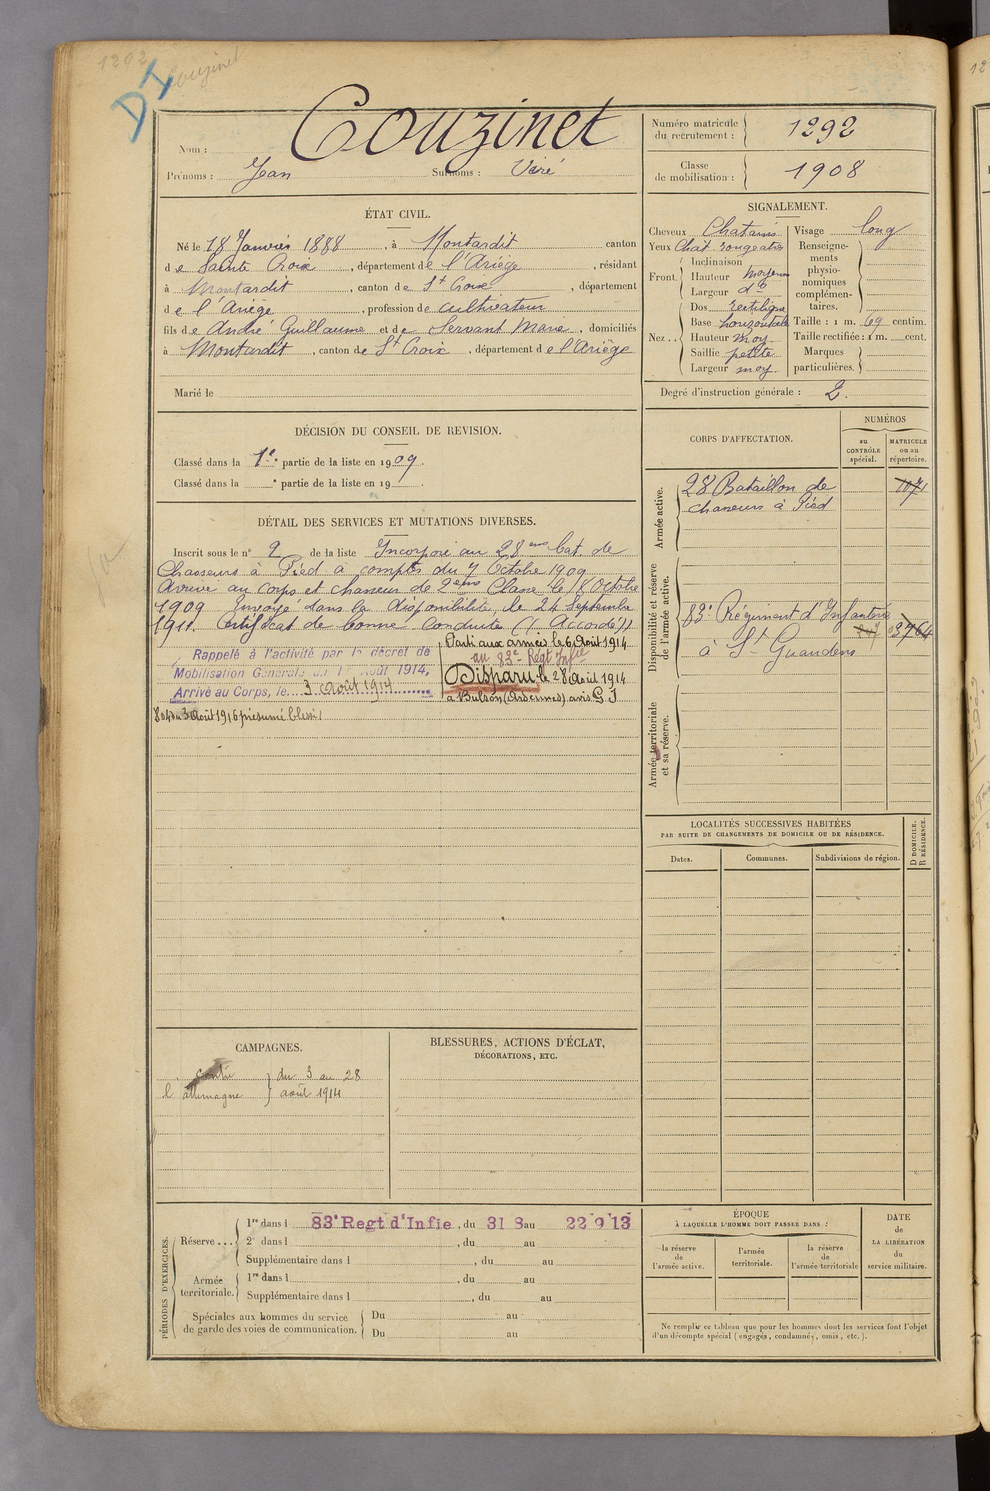 1292
Couzinet
D I
Nom : Couzinet
Prénoms : Jean Surnoms :
Numéro matricule du recrutement : 1292
Classe de mobilisation : 1908
ÉTAT CIVIL.
Né le 18 Janvier 1888, à Montardit canton
de Sainte Croix, département de l'Ariège, résidant
à Montardit, canton de St Croix, département
de l'Ariège, profession de cultivateur
fils de André Guillaume et de Servant Marie, domiciliés
à Montardit, canton de St Croix, département de l'Ariège
Marié le
SIGNALEMENT.
Cheveux Chatains
Yeux Chat. rougeatre
Front. Inclinaison
Hauteur moyenne
Largeur do
Nez.. Dos rectiligne
Base horizontale
Hauteur moy.
Saillie petite
Largeur moy.
Visage long
Renseignements physionomiques complémentaires.
Taille : 1 m. 69 centim.
Taille rectifiée : 1 m. cent.
Marques particulières.
Degré d'instruction générale : 2.
DÉCISION DU CONSEIL DE REVISION.
Classé dans la 1e partie de la liste en 1909.
Classé dans la e partie de la liste en 19 .
DÉTAIL DES SERVICES ET MUTATIONS DIVERSES.
Inscrit sous le n° 2 de la liste Incorporé au 28eme bat. de
Chasseurs à Pied à compter du 7 Octobre 1909
Arrivé au corps et chasseur de 2eme Classe le 18 Octobre
1909 Envoyé dans la disponibilité le 24 Septembre
1911. Certificat de bonne Conduite (" Accordé")
Rappelé à l'activité par le décret de
Mobilisation Générale du 1er août 1914,
Arrivé au Corps, le 3 Août 1914
Parti aux armées le 6 Août 1914
au 83e Régt Infie
Disparu le 28 Août 1914
à Bulson (Ardennes) avis G I
du 3 Août 1916 présumé blessé
CORPS D'AFFECTATION.
NUMÉROS
au CONTRÔLE spécial.
MATRICULE ou au répertoire.
Armée active.
28 Bataillon de chasseurs à Pied
1071
Disponibilité et réserve de l'armée active.
83e Régiment d'Infanterie
à St Gaudens
3764
Armée territoriale et sa réserve.
LOCALITÉS SUCCESSIVES HABITÉES
PAR SUITE DE CHANGEMENTS DE DOMICILE OU DE RÉSIDENCE.
Dates.
Communes.
Subdivisions de région.
D DOMICILE.
R RÉSIDENCE.
CAMPAGNES.
contre l'allemagne } du 3 au 28 août 1914
BLESSURES, ACTIONS D'ÉCLAT,
DÉCORATIONS, ETC.
PÉRIODES D'EXERCICES.
Réserve... 1re dans l 83e Regt d'Infie, du 31 8 au 22 9 13
2e dans l , du au
Supplémentaire dans l , du au
Armée territoriale. 1re dans l , du au
Supplémentaire dans l , du au
Spéciales aux hommes du service de garde des voies de communication. Du au
Du au
ÉPOQUE
À LAQUELLE L'HOMME DOIT PASSER DANS :
la réserve de l'armée active.
l'armée territoriale.
la réserve de l'armée territoriale
DATE
DE LA LIBÉRATION
du service militaire.
Ne remplir ce tableau que pour les hommes dont les services font l'objet
d'un décompte spécial (engagés, condamnés, omis, etc.).